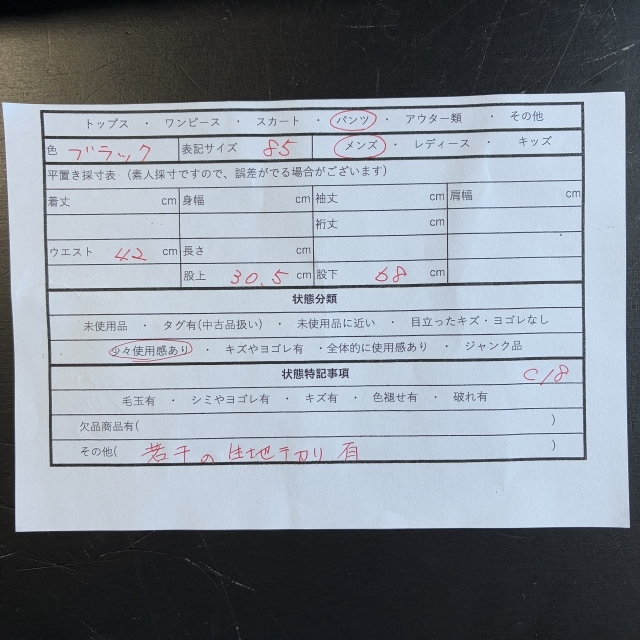 トップス ・ ワンピース ・ スカート ・ パンツ ・ アウター類 ・ その他
色 ブラック 表記サイズ 85 メンズ ・ レディース ・ キッズ
平置き採寸表 (素人採寸ですので、誤差がでる場合がございます)
着丈 cm 身幅 cm 袖丈 cm 肩幅 cm
裄丈 cm
ウエスト 42 cm 長さ cm
股上 30.5 cm 股下 68 cm
状態分類
未使用品 ・ タグ有(中古品扱い) ・ 未使用品に近い ・ 目立ったキズ・ヨゴレなし
少々使用感あり ・ キズやヨゴレ有 ・全体的に使用感あり ・ ジャンク品
状態特記事項 C18
毛玉有 ・ シミやヨゴレ有 ・ キズ有 ・ 色褪せ有 ・ 破れ有
欠品商品有( )
その他( 若干の生地テカリ有 )